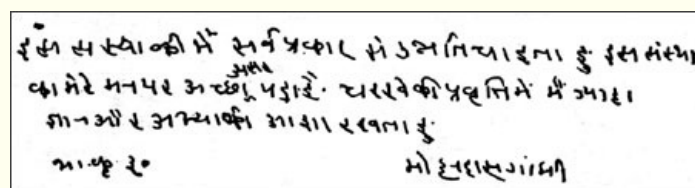 इस संस्था की मैं सर्व प्रकार से उन्नति चाहता हुं इस संस्था
का मेरे मनपर अच्छा असर पड़ा है. चरखेकी प्रवृत्तिमें मैं ज्यादा
ज्ञान और अभ्याकी आशा रखता हुं
भा. कृ. ३०
मोहनदास गांधी